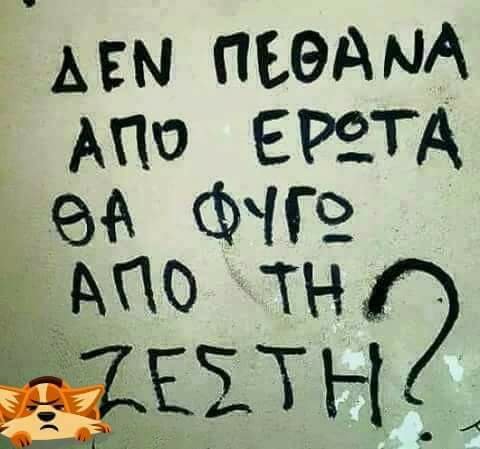 ΔΕΝ ΠΕΘΑΝΑ
ΑΠΟ ΕΡΩΤΑ
ΘΑ ΦΥΓΩ
ΑΠΟ ΤΗ
ΖΕΣΤΗ?